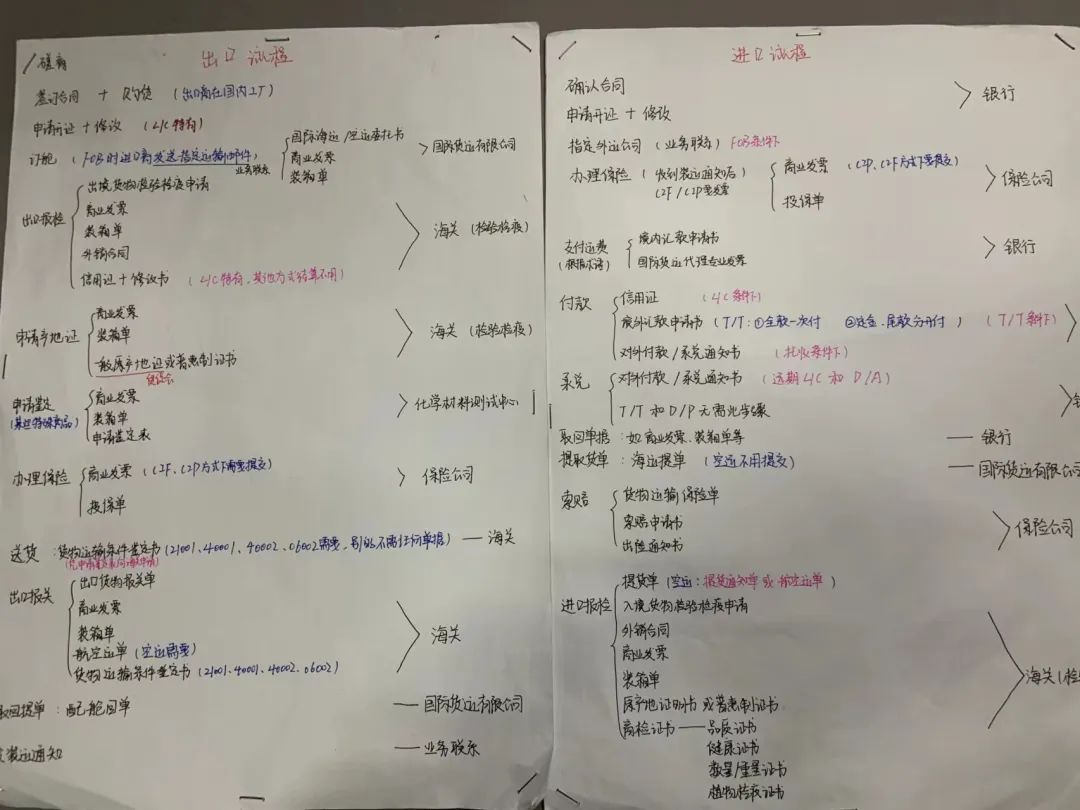 出口流程
磋商
签订合同 + 备货 (出口商在国内工厂)
申请开证 + 修改 (L/C特有)
订舱 (FOB时进口商发送指定运输邮件)
业务联系
国际海运/空运委托书
商业发票
装箱单
国际货运有限公司
出口报检
出境货物检验检疫申请
商业发票
装箱单
外销合同
信用证 + 修改书 (L/C特有,其他方式结算不用)
海关 (检验检疫)
申请产地证
商业发票
装箱单
一般原产地证或普惠制证书
海关 (检验检疫)
申请鉴定
(某些特殊商品)
商业发票
装箱单
申请鉴定表
化学材料测试中心
办理保险
商业发票 (CIF、CIP方式下需要提交)
投保单
保险公司
送货:货物运输条件鉴定书(21001、40001、40002、06002需要,别的不需任何单据) — 海关
出口报关
出口货物报关单
商业发票
装箱单
航空运单 (空运需要)
货物运输条件鉴定书 (21001、40001、40002、06002)
海关
取回提单:配舱回单 — 国际货运有限公司
发装运通知 — 业务联系
进口流程
确认合同
申请开证 + 修改
银行
指定外运公司 (业务联系) FOB条件下
办理保险 (收到装运通知后)
CIF/CIP要发票
商业发票 (CIP、CIF方式下要提交)
投保单
保险公司
支付运费
(根据术语)
境内汇款申请书
国际货运代理专业发票
银行
付款
信用证 (L/C条件下)
境外汇款申请书 (T/T:①全款一次付 ②定金、尾款分开付) (T/T条件下)
对外付款/承兑通知书 (托收条件下)
承兑
对外付款/承兑通知书 (远期L/C和D/A)
T/T和D/P无需此步骤
取回单据:如商业发票、装箱单等 — 银行
提取货单:海运提单 (空运不用提交) — 国际货运有限公司
索赔
货物运输保险单
索赔申请书
出险通知书
保险公司
进口报检
提货单 (空运:提货通知单或航空运单)
入境货物检验检疫申请
外销合同
商业发票
装箱单
原产地证明书或普惠制证书
商检证书 — 品质证书
健康证书
数量/重量证书
植物检疫证书
海关(检